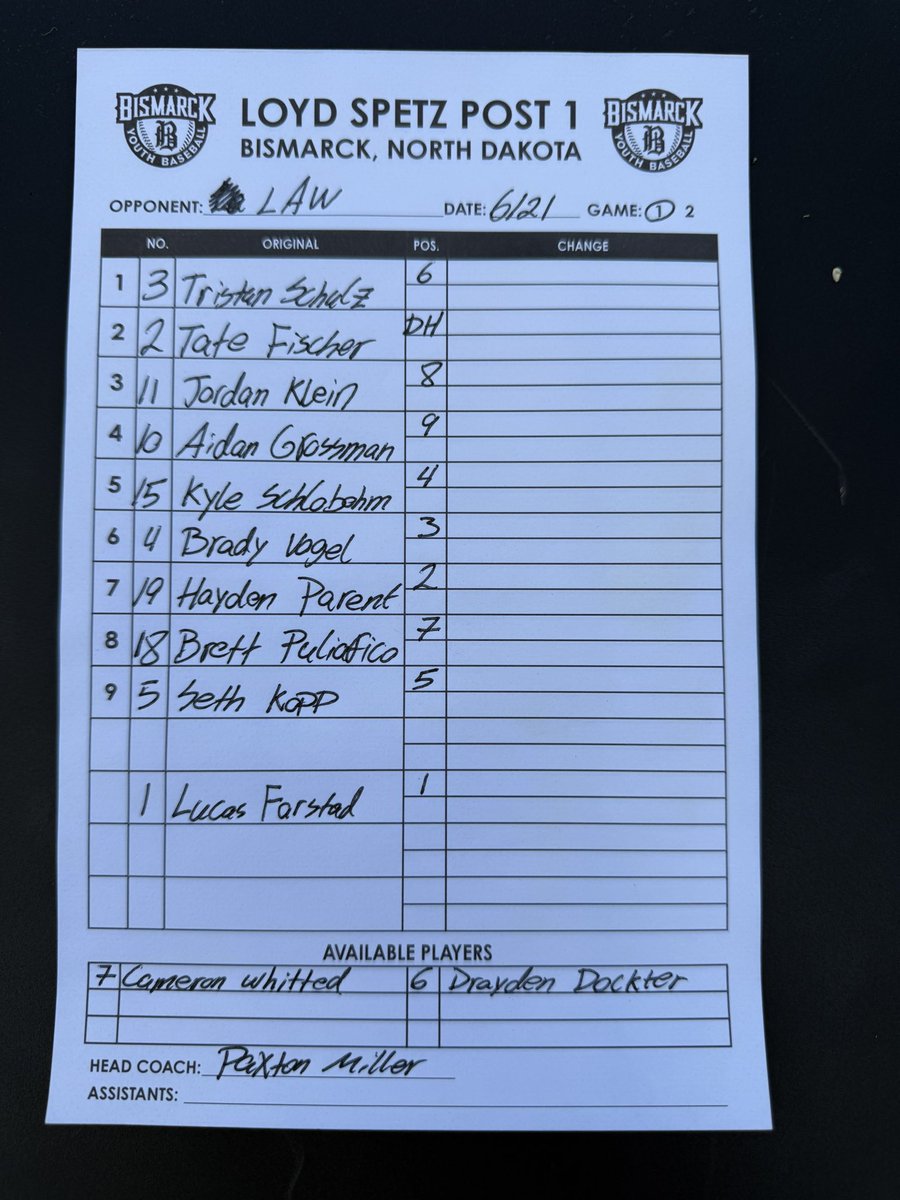 BISMARCK B YOUTH BASEBALL
LOYD SPETZ POST 1
BISMARCK, NORTH DAKOTA
BISMARCK B YOUTH BASEBALL
OPPONENT: LAW DATE: 6/21 GAME: 1 2
NO. ORIGINAL POS. CHANGE
1 3 Tristan Schulz 6
2 2 Tate Fischer DH
3 11 Jordan Klein 8
4 10 Aidan Grossman 9
5 15 Kyle Schlobohm 4
6 4 Brady Vogel 3
7 19 Hayden Parent 2
8 18 Brett Puliafico 7
9 5 Seth Kopp 5
1 Lucas Farstad 1
AVAILABLE PLAYERS
7 Cameron Whitted 6 Drayden Dockter
HEAD COACH: Paxton Miller
ASSISTANTS: